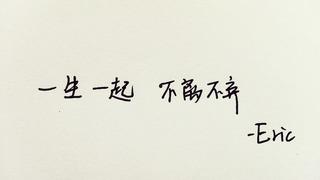 一生一起 不离不弃
-Eric